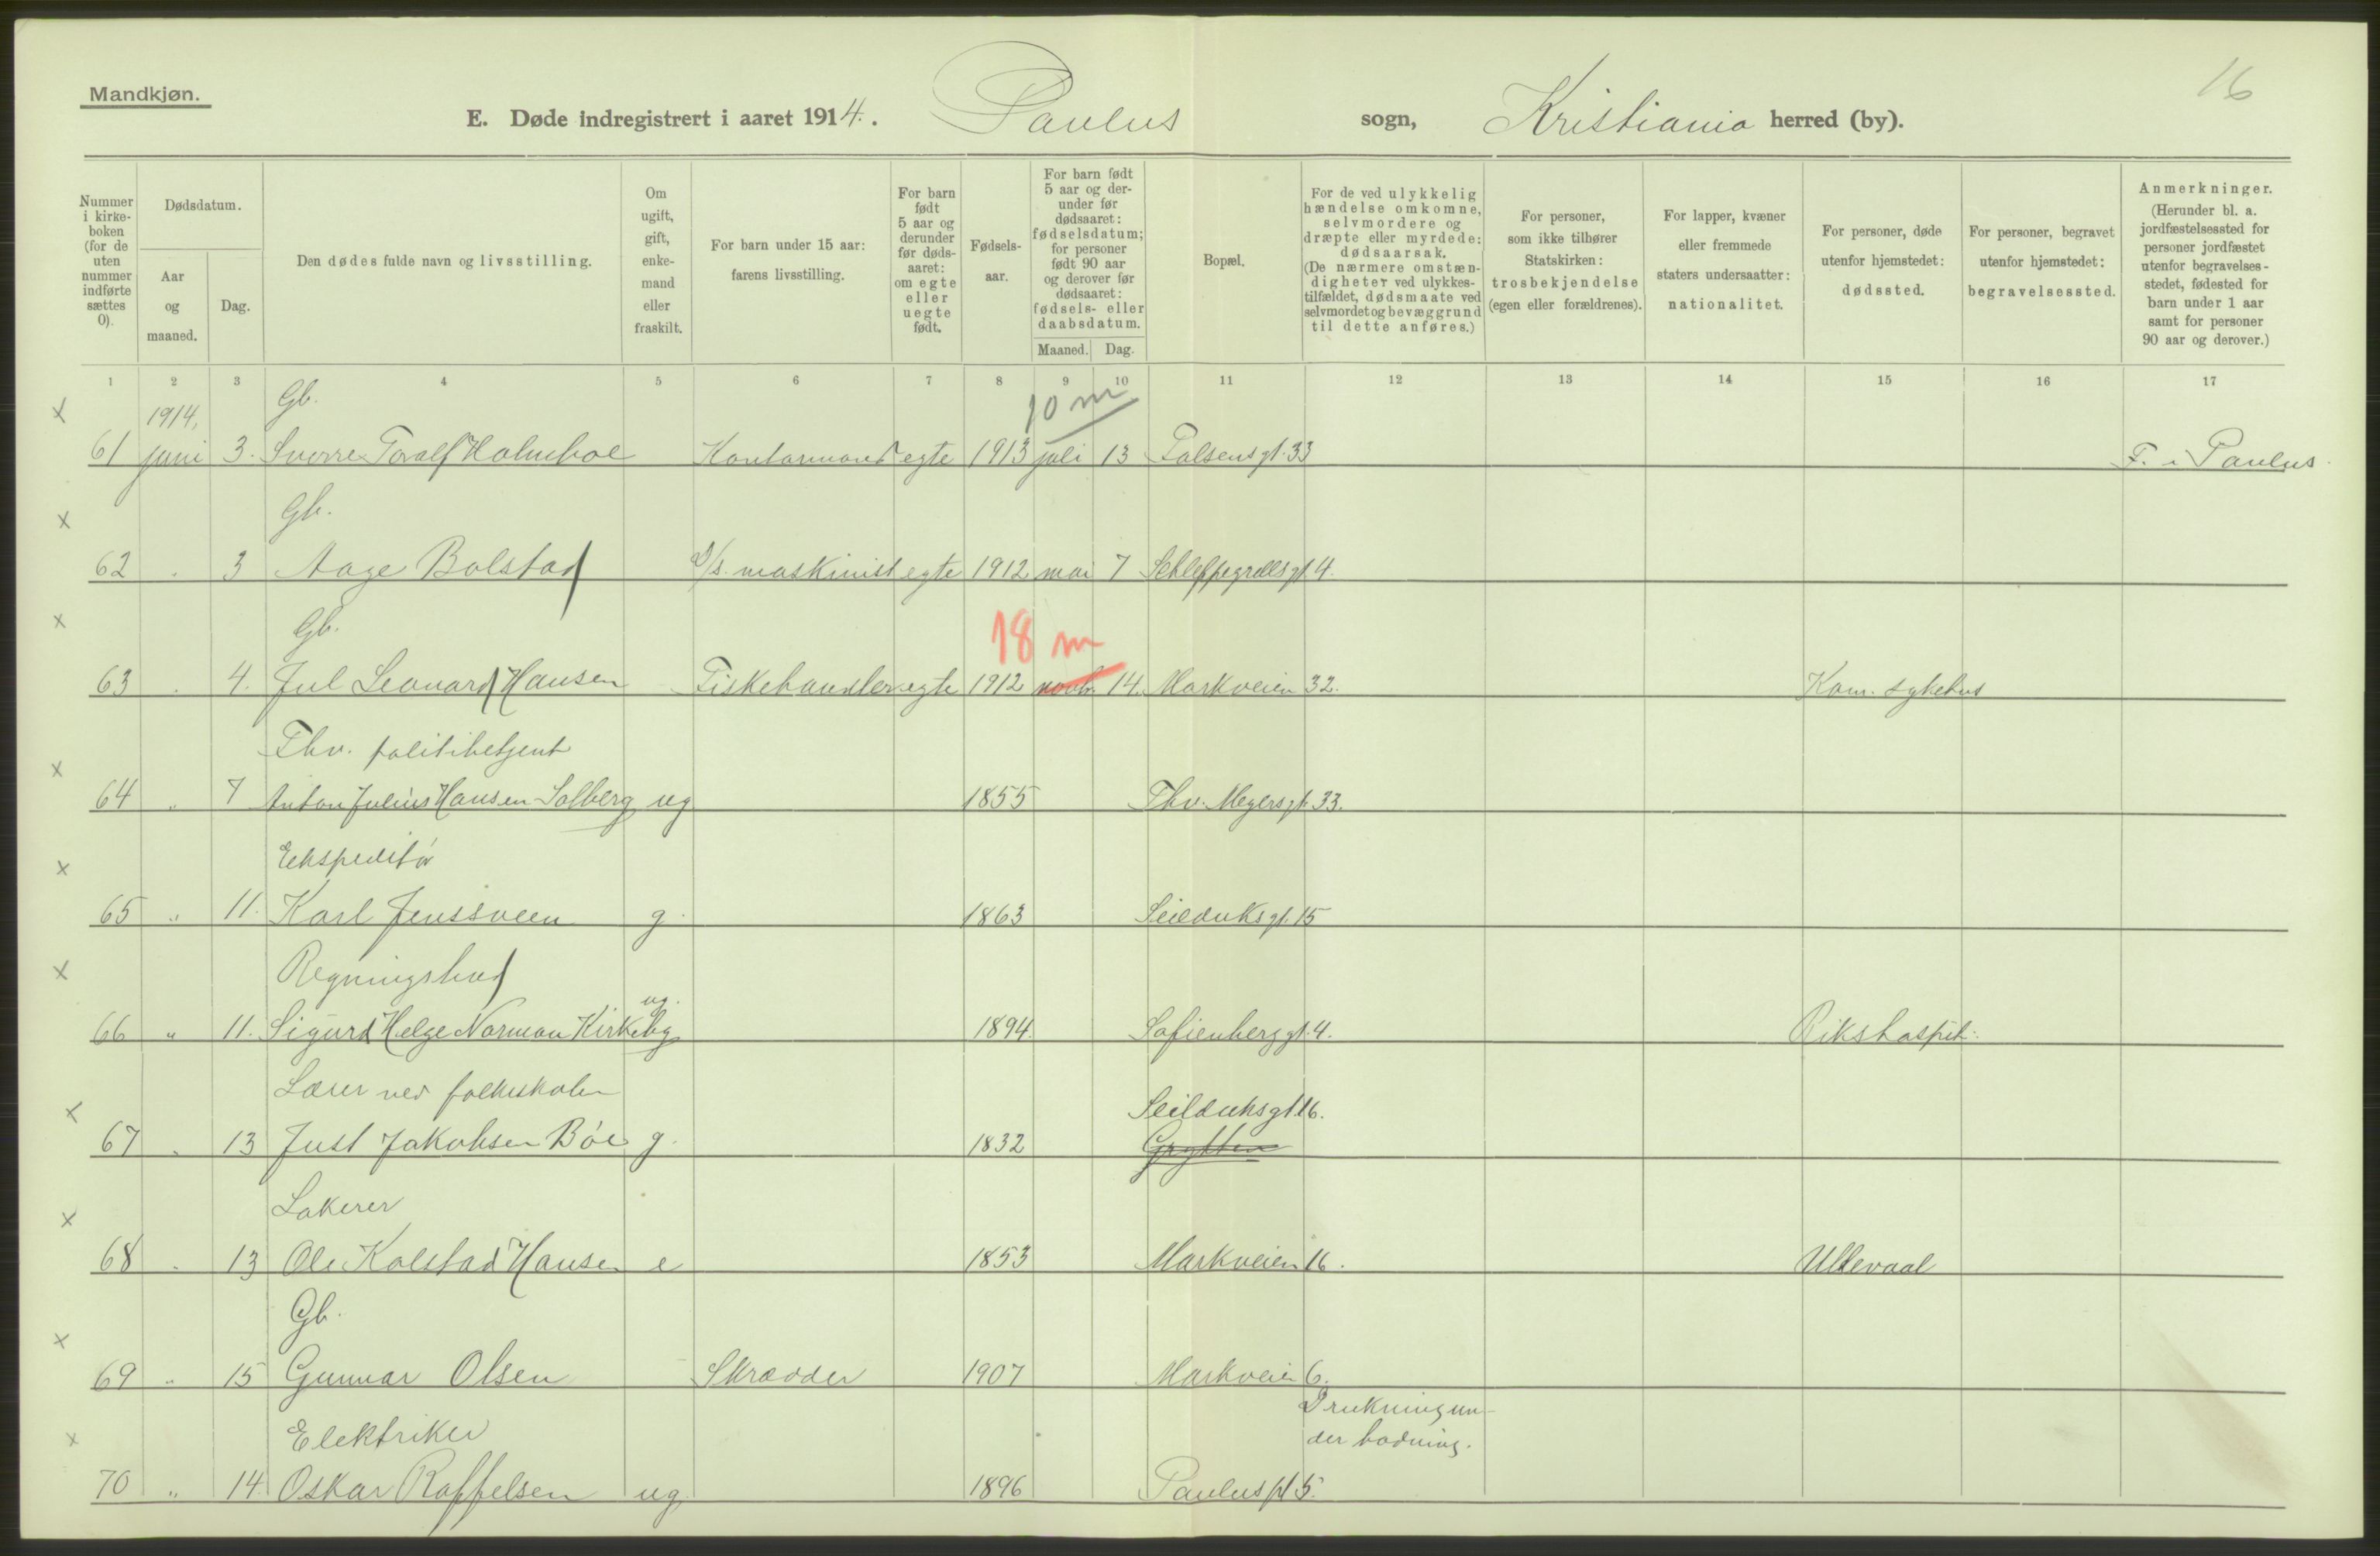 Mandkjøn.
16
E. Døde indregistrert i aaret 1914. Paulus sogn, Kristiania herred (by).
Nummer i kirke-boken (for de uten nummer indførte sættes 0).
Dødsdatum.
Aar og maaned.
Dag.
Den dødes fulde navn og livsstilling.
Om ugift, gift, enke-mand eller fraskilt.
For barn under 15 aar: farens livsstilling.
For barn født 5 aar og derunder før døds-aaret: om egte eller uegte født.
Fødsels-aar.
For barn født 5 aar og der-under før dødsaaret: fødselsdatum; for personer født 90 aar og derover før dødsaaret: fødsels- eller daabsdatum.
Maaned. Dag.
Bopæl.
For de ved ulykkelig hændelse omkomne, selvmordere og dræpte eller myrdede: dødsaarsak. (De nærmere omstæn-digheter ved ulykkes-tilfældet, dødsmaate ved selvmordet og bevæggrund til dette anføres.)
For personer, som ikke tilhører Statskirken: trosbekjendelse (egen eller forældrenes).
For lapper, kvæner eller fremmede staters undersaatter: nationalitet.
For personer, døde utenfor hjemstedet: dødssted.
For personer, begravet utenfor hjemstedet: begravelsessted.
Anmerkninger. (Herunder bl. a. jordfæstelsessted for personer jordfæstet utenfor begravelses-stedet, fødested for barn under 1 aar samt for personer 90 aar og derover.)
1 2 3 4 5 6 7 8 9 10 11 12 13 14 15 16 17
x 1914, Gb. 10 m
61 juni 3. Sverre Toralf Holmboe Kontormand egte 1913 juli 13 Falsensgt. 33 F. i Paulus.
x Gb.
62 . 3 Aage Bolstad D/s. maskinist egte 1912 mai 7 Schleppegrellsgt. 4.
x Gb. 18 m
63 . 4. Jul Leonard Hansen Fiskehandler egte 1912 novb. 14. Markveien 32. Kom. sykehus
Fhv. politibetjent
x
64 " 7 Anton Julius Hansen Solberg ug 1855 Thv. Meyersgt. 33.
Ekspeditør
x
65 " 11. Karl Jenssveen g. 1863 Seilduksgt. 15
x Regningsbud
ug.
66 " 11. Sigurd Helge Norman Kirkeby 1894. Sofienberggt. 4. Rikshospit.
Lærer ved folkeskolen
x Seilduksgt. 16.
67 . 13 Just Jakobsen Bøe g. 1832 Grytten
Lakerer
x
68 . 13 Ole Kolstad Hansen e 1853 Markveien 16. Ullevaal
Gb.
x
69 " 15 Gunnar Olsen Skrædder 1907 Markveien 6.
Drukning un-
x Elektriker der badning.
70 " 14. Oskar Raffelsen ug 1896 Paulus pl 5.